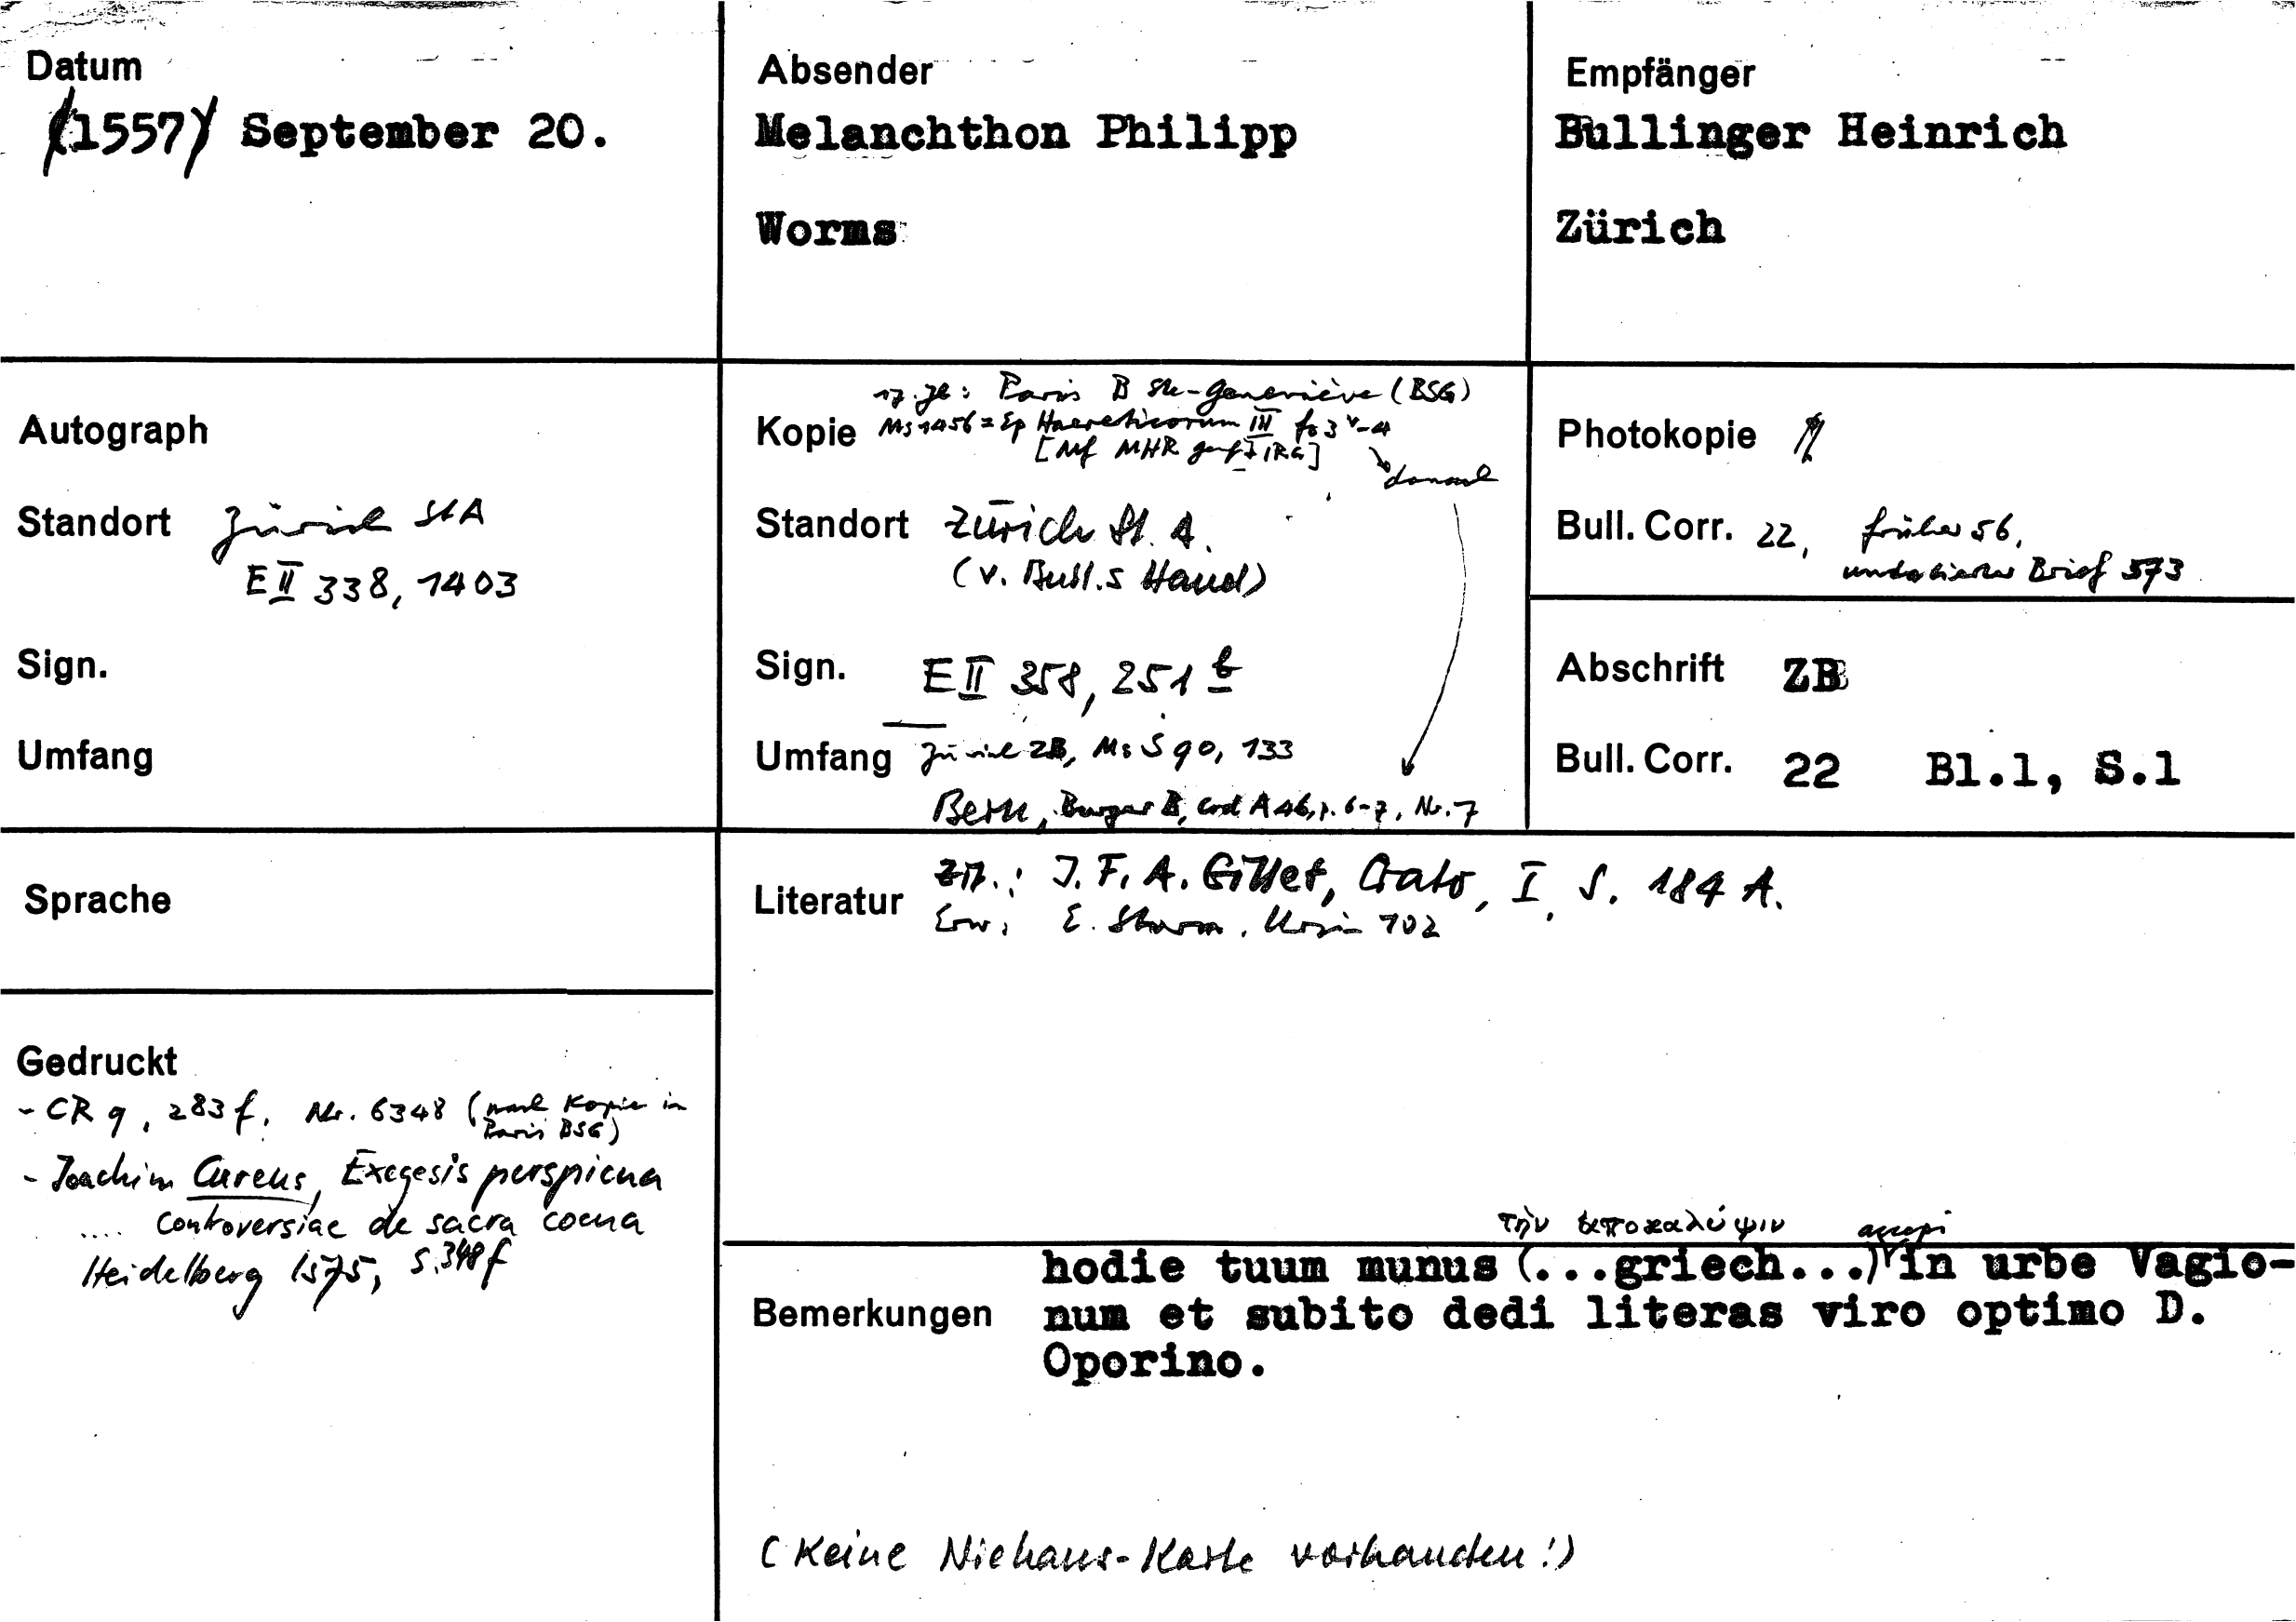 Datum
(1557) September 20.
Absender
Melanchthon Philipp
Worms
Empfänger
Bullinger Heinrich
Zürich
Autograph
Standort Zürich StA
E II 338, 1403
Sign.
Umfang
17. Jh: Paris B Ste-Geneviève (BSG)
Kopie Ms 1456 = Ep Haereticorum III fo 3v-4
[Mf MHR Genf + IRG]
danach
Standort Zürich St. A.
(v. Bull.s Hand)
Sign. E II 358, 251 b
Umfang Zürich ZB, Ms S 90, 133
Bern, Burger B, Cod A 46, p. 6-7, Nr. 7
Photokopie
Bull. Corr. 22, früher 56,
undatierter Brief 573
Abschrift ZB
Bull. Corr. 22 Bl.1, S.1
Sprache
Literatur Zit.: J. F. A. Gillet, Crato, I, S. 184 A.
Erw. E. Sturm, Ursin 102
Gedruckt
- CR 9, 283 f, Nr. 6348 (nach Kopie in
Paris BSG)
- Joachim Cureus, Exegesis perspicua
.... controversiae de sacra coena
Heidelberg 1575, S. 348 f
τὴν ἀποκαλύψιν accepi
hodie tuum munus (...griech...) in urbe Vagio-
Bemerkungen num et subito dedi literas viro optimo D.
Oporino.
(Keine Niehaus-Karte vorhanden!)